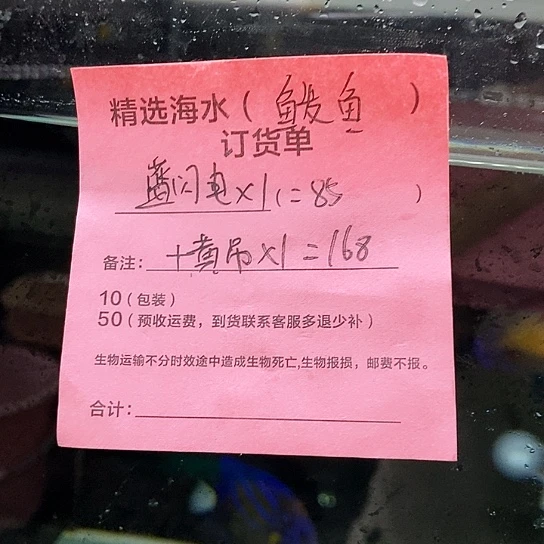 精选海水（鲅鱼）
订货单
蓝闪电×1（=85）
备注：+黄吊×1=168
10（包装）
50（预收运费，到货联系客服多退少补）
生物运输不分时效途中造成生物死亡,生物报损，邮费不报。
合计：